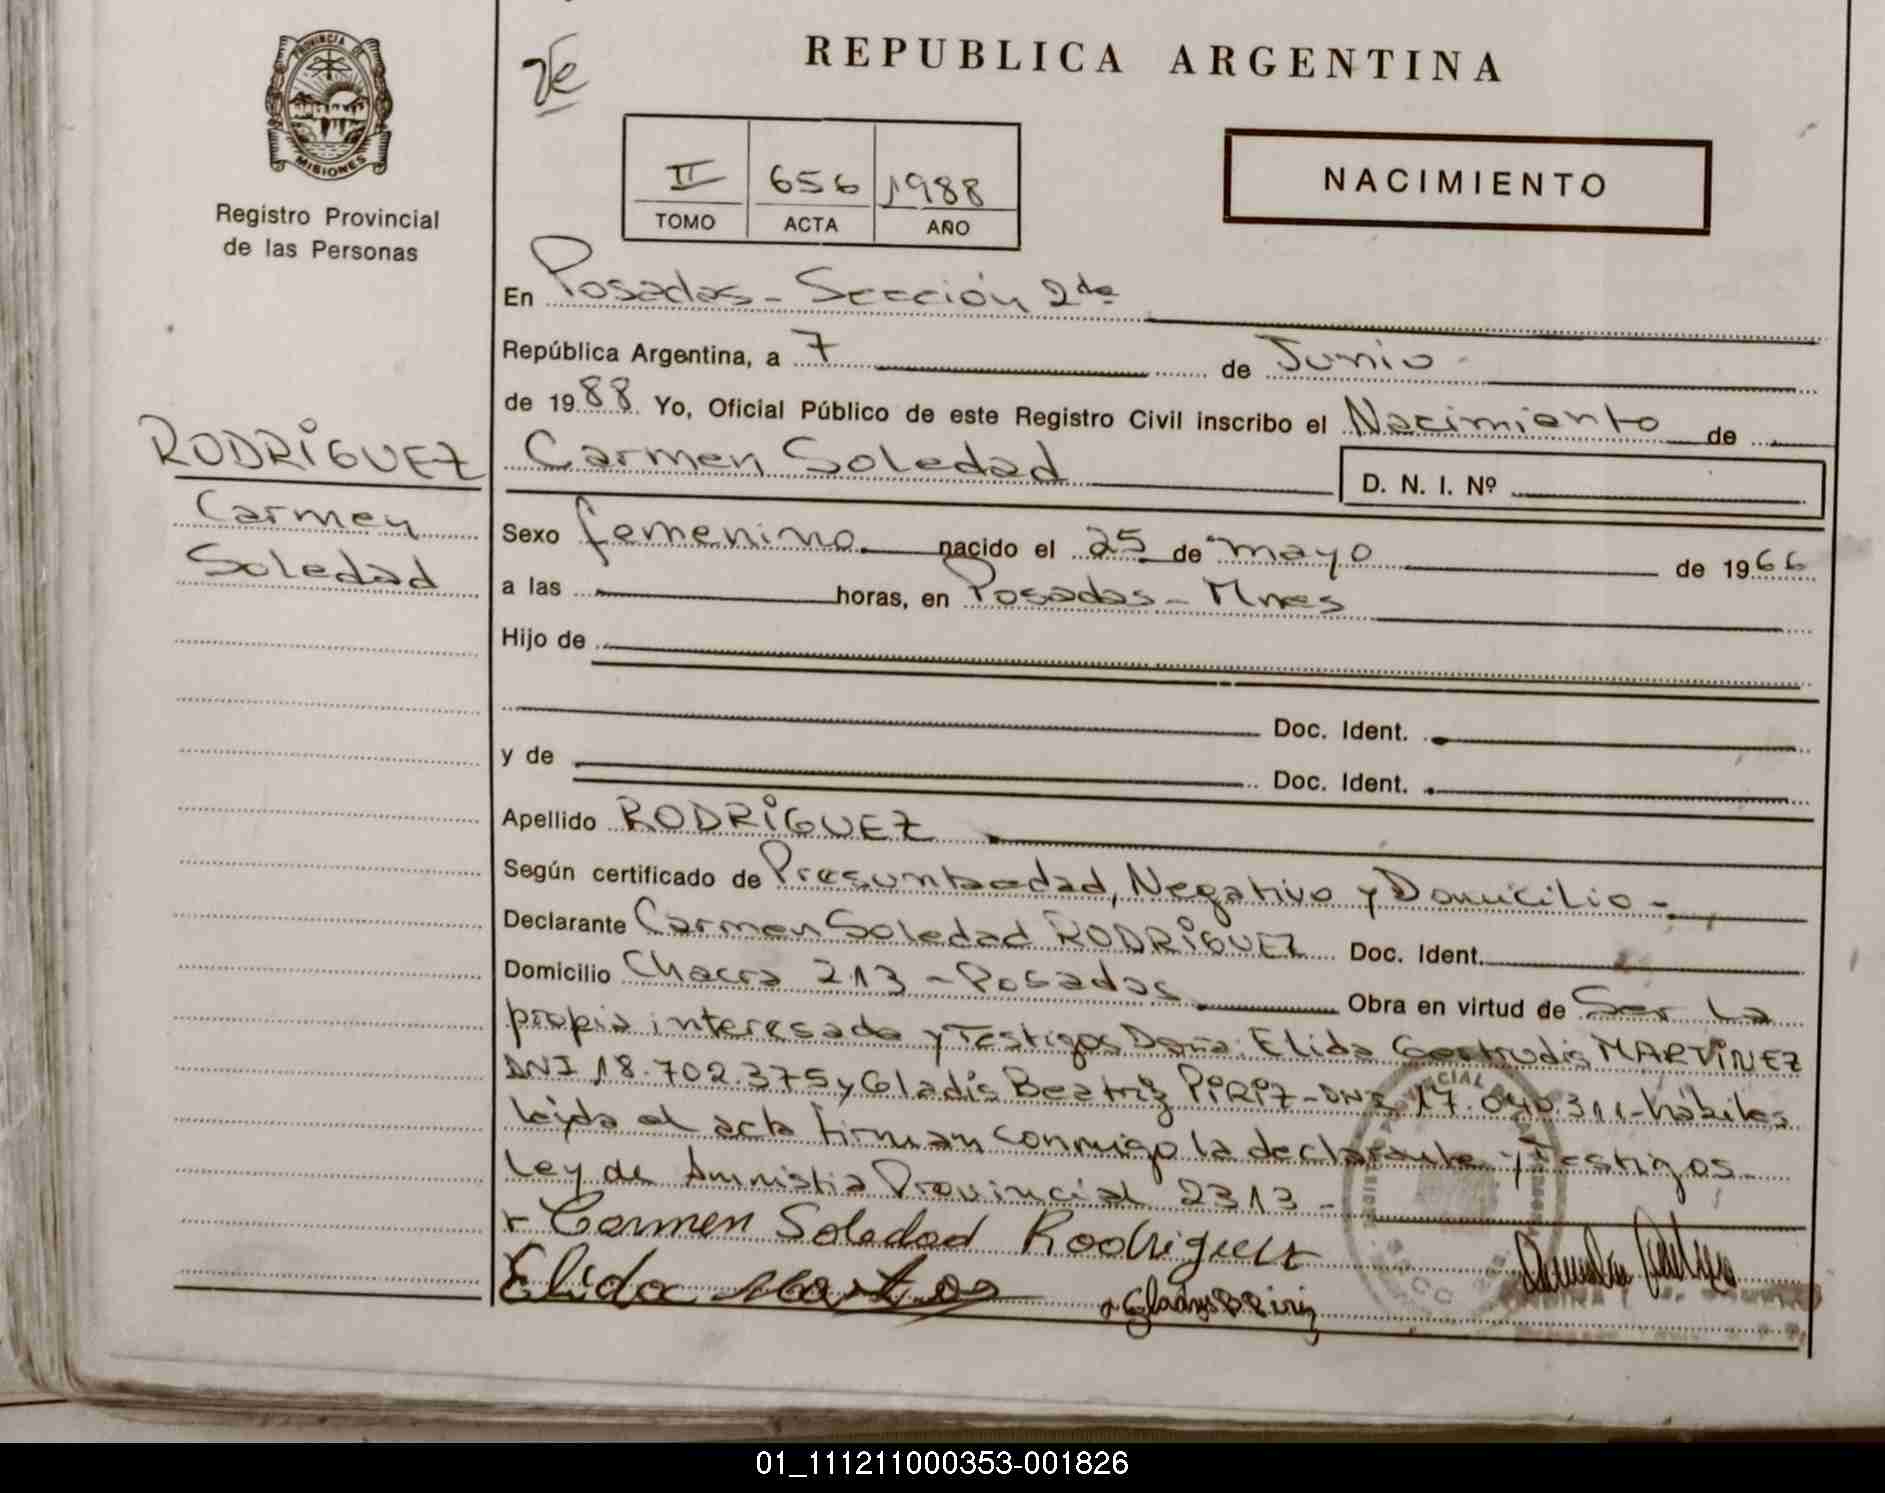 REPUBLICA ARGENTINA
PROVINCIA DE
MISIONES
Registro Provincial
de las Personas
II 656 1988
TOMO ACTA AÑO
NACIMIENTO
En Posadas - Sección 2da
República Argentina, a 7 de Junio
de 1988. Yo, Oficial Público de este Registro Civil inscribo el Nacimiento de
RODRIGUEZ
Carmen
Soledad
Carmen Soledad
D. N. I. Nº
Sexo femenino nacido el 25 de mayo de 1966
a las horas, en Posadas - Mnes
Hijo de
Doc. Ident.
y de Doc. Ident.
Apellido RODRIGUEZ
Según certificado de Presuntaedad, Negativo y Domicilio -
Declarante Carmen Soledad RODRIGUEZ Doc. Ident.
Domicilio Chacra 213 - Posadas Obra en virtud de Ser la
propia interesada y Testigos Doña: Elida Gertrudis MARTINEZ
DNI 18.702.375 y Gladis Beatriz PIRIZ - DNI 17.040.311 - hábiles
leída el acta firman conmigo la declarante y Testigos -
Ley de Amnistia Provincial 2313 -
Carmen Soledad Rodriguez
Elida
Gladys B Piriz
01_111211000353-001826